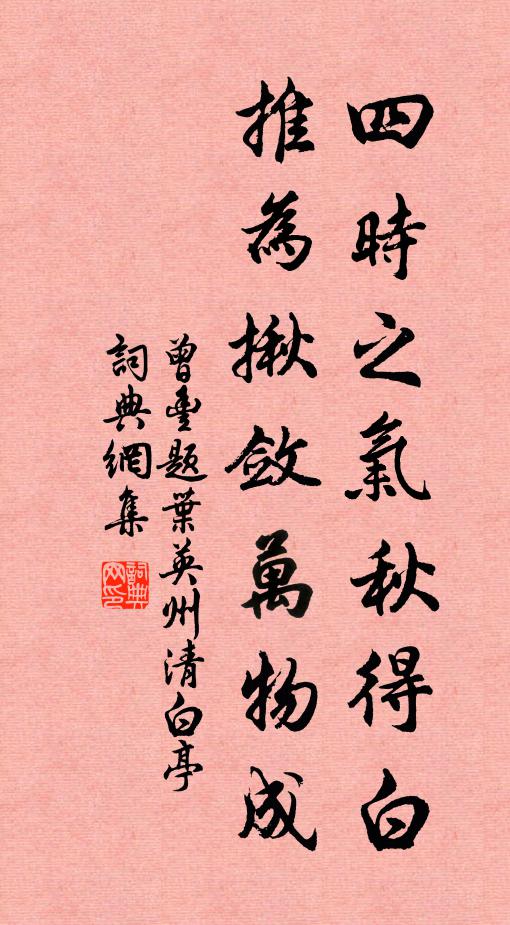 四時之氣秋得白
推為揪斂萬物成
曾豐題葉英州清白亭
詞典網集
詞典網印